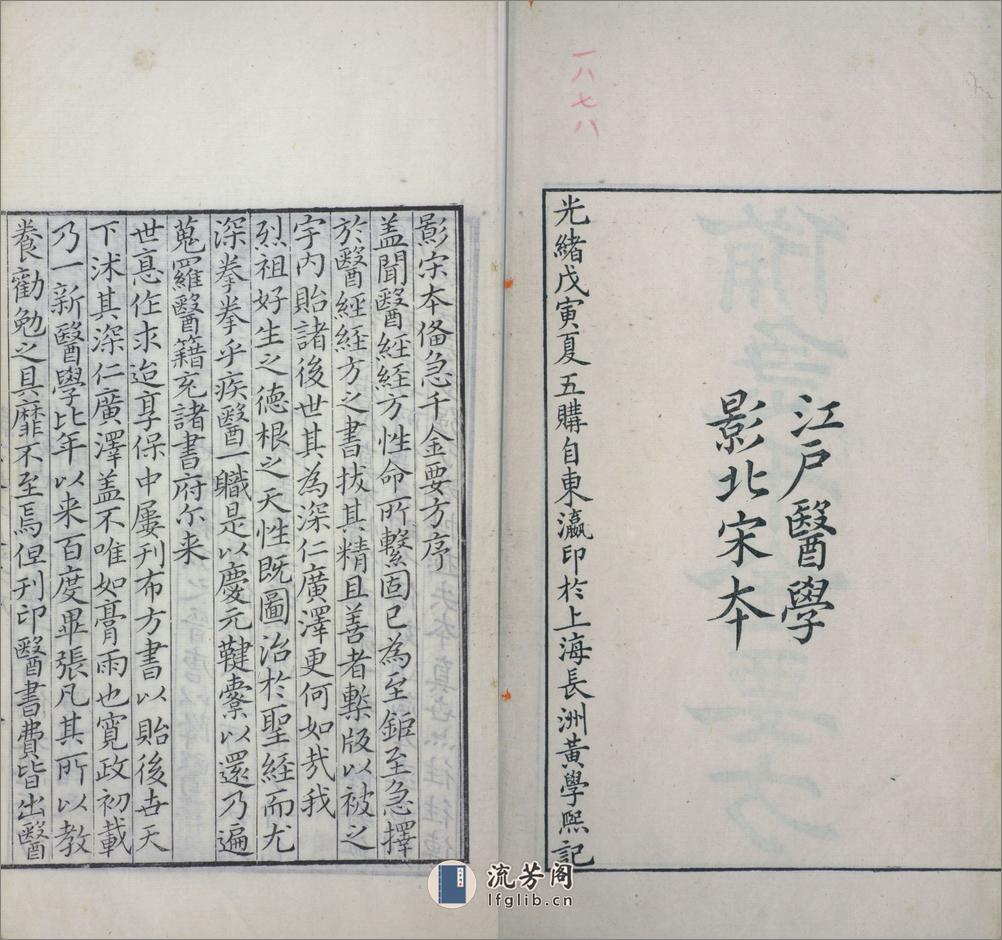 一八七八
江戶醫學
影北宋本
光緒戊寅夏五購自東瀛印於上海長洲黃學熙記
影宋本俻急千金要方序
盖聞醫經經方性命所繫固已為至鉅至急擇
於醫經經方之書拔其精且善者槧版以被之
宇内貽諸後世其為深仁廣澤更何如㢤我
烈祖好生之德根之天性既圖治於聖經而尤
深拳拳乎疾醫一職是以慶元鞬櫜以還乃遍
蒐羅醫籍充諸書府尓来
世息作求迨享保中屢刊布方書以貽後世天
下沭其深仁廣澤盖不唯如膏雨也寛政初載
乃一新醫學比年以来百度畢張凡其所以教
養勸勉之具靡不至焉但刊印醫書費皆出醫
流芳阁
lfglib.cn